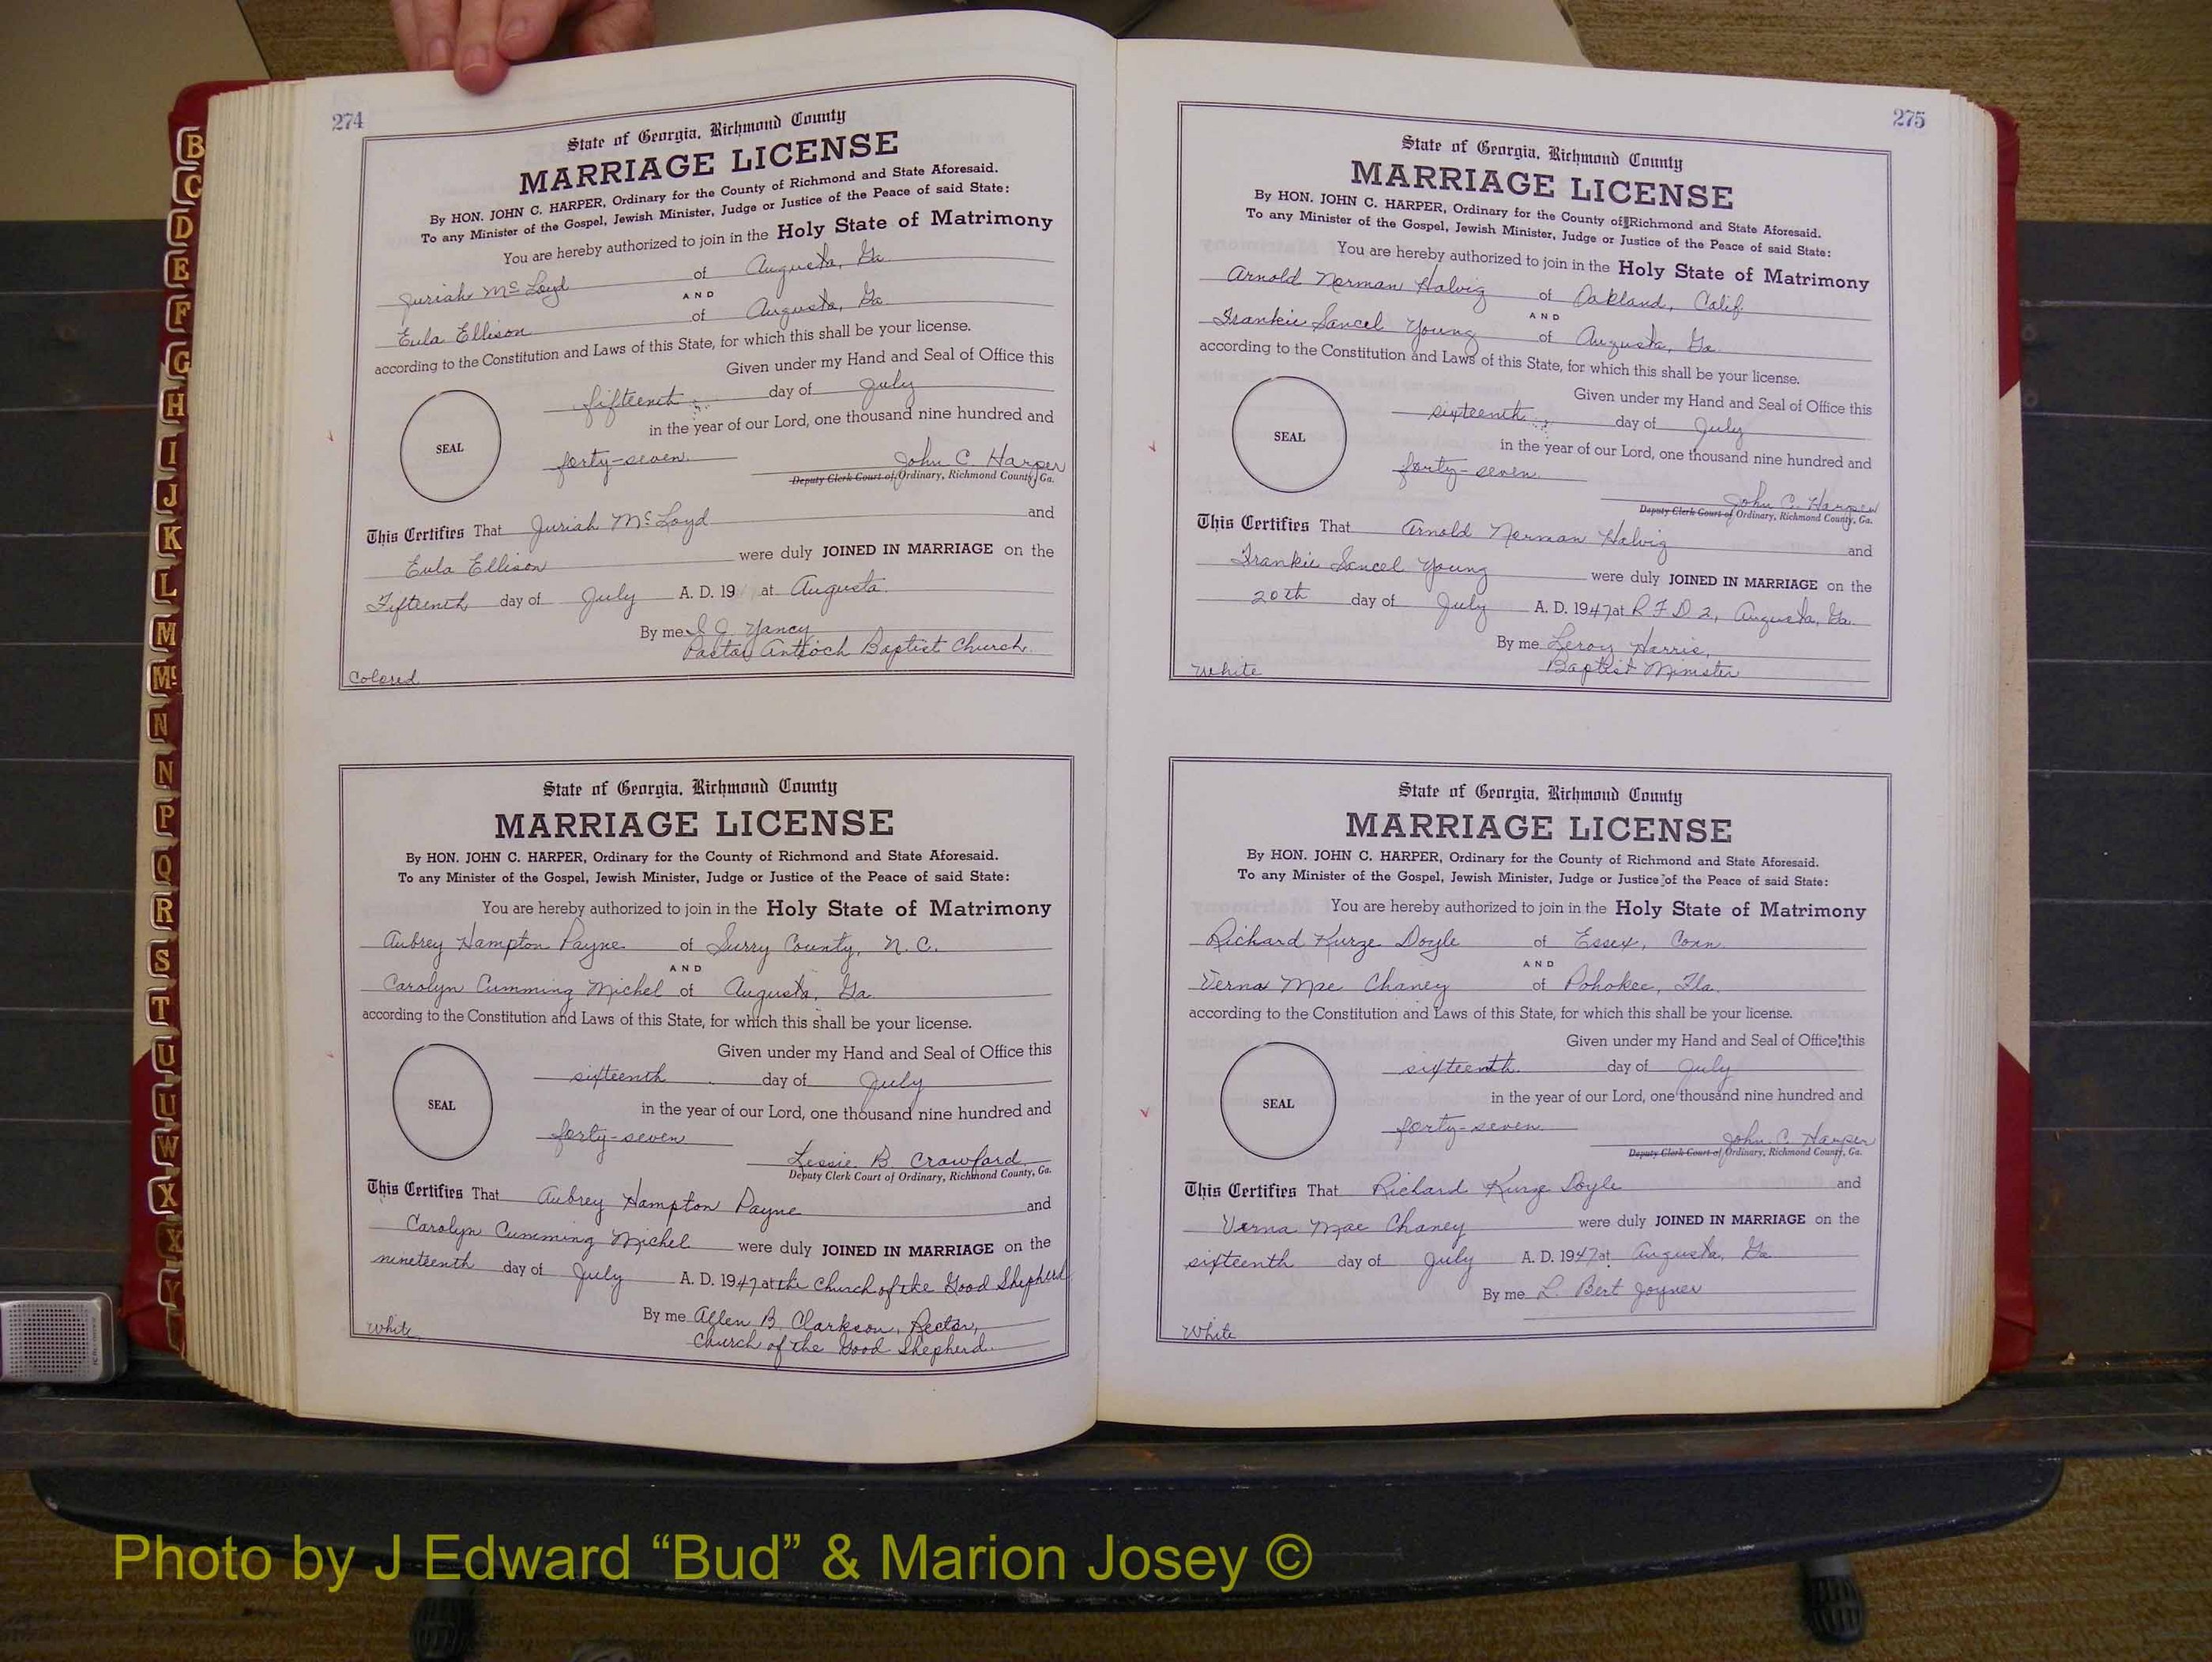 274
State of Georgia, Richmond County
MARRIAGE LICENSE
By HON. JOHN C. HARPER, Ordinary for the County of Richmond and State Aforesaid.
To any Minister of the Gospel, Jewish Minister, Judge or Justice of the Peace of said State:
You are hereby authorized to join in the Holy State of Matrimony
Juriah McLoyd of Augusta, Ga.
AND
Eula Ellison of Augusta, Ga.
according to the Constitution and Laws of this State, for which this shall be your license.
Given under my Hand and Seal of Office this
fifteenth day of July
in the year of our Lord, one thousand nine hundred and
SEAL
forty-seven. John C. Harper
Deputy Clerk Court of Ordinary, Richmond County, Ga.
This Certifies That Juriah McLoyd and
Eula Ellison were duly JOINED IN MARRIAGE on the
Fifteenth day of July A. D. 19 at Augusta.
By me Yancy
Pastor Antioch Baptist Church.
Colored
State of Georgia, Richmond County
MARRIAGE LICENSE
By HON. JOHN C. HARPER, Ordinary for the County of Richmond and State Aforesaid.
To any Minister of the Gospel, Jewish Minister, Judge or Justice of the Peace of said State:
You are hereby authorized to join in the Holy State of Matrimony
Aubrey Hampton Payne of Surry County, N. C.
AND
Carolyn Cumming Michel of Augusta, Ga.
according to the Constitution and Laws of this State, for which this shall be your license.
Given under my Hand and Seal of Office this
sixteenth day of July
SEAL
in the year of our Lord, one thousand nine hundred and
forty-seven
Lessie B. Crawford
Deputy Clerk Court of Ordinary, Richmond County, Ga.
This Certifies That Aubrey Hampton Payne and
Carolyn Cumming Michel were duly JOINED IN MARRIAGE on the
nineteenth day of July A. D. 1947 at the Church of the Good Shepherd
By me Allen B. Clarkson, Rector,
Church of the Good Shepherd.
White
275
State of Georgia, Richmond County
MARRIAGE LICENSE
By HON. JOHN C. HARPER, Ordinary for the County of Richmond and State Aforesaid.
To any Minister of the Gospel, Jewish Minister, Judge or Justice of the Peace of said State:
You are hereby authorized to join in the Holy State of Matrimony
Arnold Norman Halvig of Oakland, Calif
AND
Frankie Sancel Young of Augusta, Ga.
according to the Constitution and Laws of this State, for which this shall be your license.
Given under my Hand and Seal of Office this
sixteenth day of July
SEAL
in the year of our Lord, one thousand nine hundred and
forty-seven
John C. Harper
Deputy Clerk Court of Ordinary, Richmond County, Ga.
This Certifies That Arnold Norman Halvig and
Frankie Sancel Young were duly JOINED IN MARRIAGE on the
20th day of July A. D. 1947 at R F D 2, Augusta, Ga.
By me Leroy Harris,
Baptist Minister
White
State of Georgia, Richmond County
MARRIAGE LICENSE
By HON. JOHN C. HARPER, Ordinary for the County of Richmond and State Aforesaid.
To any Minister of the Gospel, Jewish Minister, Judge or Justice of the Peace of said State:
You are hereby authorized to join in the Holy State of Matrimony
Richard Kurze Doyle of Essex, Conn.
AND
Verna Mae Chaney of Pohokee, Fla.
according to the Constitution and Laws of this State, for which this shall be your license.
Given under my Hand and Seal of Office this
sixteenth day of July
SEAL
in the year of our Lord, one thousand nine hundred and
forty-seven
John C. Harper
Deputy Clerk Court of Ordinary, Richmond County, Ga.
This Certifies That Richard Kurze Doyle and
Verna Mae Chaney were duly JOINED IN MARRIAGE on the
sixteenth day of July A. D. 1947 at Augusta, Ga.
By me L. Bert Joyner
White
B
C
D
E
F
G
H
I
J
K
L
M
Mc
N
N
P
Q
R
S
T
U
U
W
X
X
Y
Photo by J Edward “Bud” & Marion Josey ©